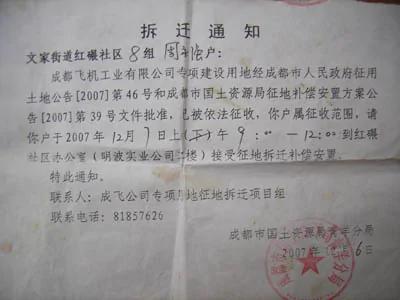 拆迁通知
文家街道红碾社区8组 周 户：
成都飞机工业有限公司专项建设用地经成都市人民政府征用
土地公告[2007]第46号和成都市国土资源局征地补偿安置方案公
告[2007]第39号文件批准，已被依法征收，你户属征收范围，请
你户于2007年12月7日上（下）午9：00—12：00到红碾
社区办公室（明波实业公司二楼）接受征地拆迁补偿安置。
特此通知。
联系人：成飞公司专项用地征地拆迁项目组
联系电话：81857626
成都市国土资源局青羊分局
2007年12月6日